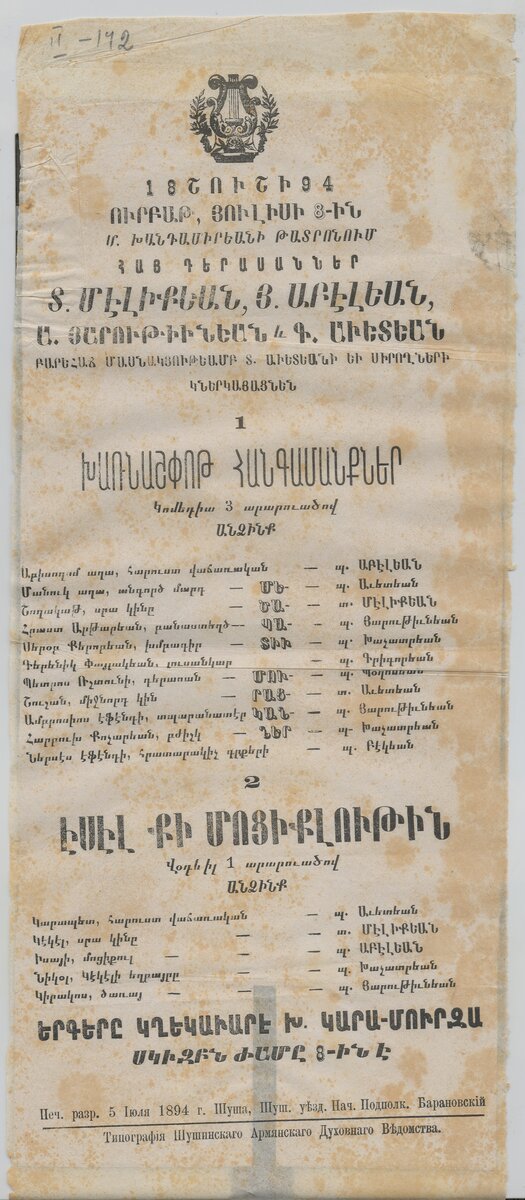 II -172
18 ՇՈՒՇԻ 94
ՈՒՐԲԱԹ, ՅՈՒԼԻՍԻ 8-ԻՆ
Մ. ԽԱՆԴԱՄԻՐԵԱՆԻ ԹԱՏՐՈՆՈՒՄ
ՀԱՅ ԴԵՐԱՍԱՆՆԵՐ
Տ. ՄԷԼԻՔԵԱՆ, Յ. ԱԲԷԼԵԱՆ,
Ա. ՅԱՐՈՒԹԻՒՆԵԱՆ և Գ. ԱՒԵՏԵԱՆ
ԲԱՐԵՀԱՃ ՄԱՍՆԱԿՅՈՒԹԵԱՄԲ Տ. ԱՒԵՏԵԱՆԻ ԵՒ ՍԻՐՈՂՆԵՐԻ
ԿՆԵՐԿԱՅԱՑՆԵՆ
1
ԽԱՌՆԱՇՓՈԹ ՀԱՆԳԱՄԱՆՔՆԵՐ
Կոմեդիա 3 արարուածով
ԱՆՁԻՆՔ
Աբիսողոմ աղա, հարուստ վաճառական — պ. ԱԲԷԼԵԱՆ
Մանուկ աղա, անգործ մարդ — ՄԵ- — պ. Աւետեան
Շողակաթ, սրա կինը — ԾԱ- — տ. ՄԷԼԻՔԵԱՆ
Հրաստ Արթարեան, բանաստեղծ — ՊԱ- — պ. Յարութիւնեան
Սերօբ Քերորեան, խմբագիր — ՏԻՒ — պ. Խաչատրեան
Դերենիկ Փայլակեան, լուսանկար — պ. Գրիգորեան
Պետրոս Ռշտունի, դերասան — ՄՈՒ- — պ. Պօղոսեան
Շուշան, միջնորդ կին — ՐԱՑ- — տ. Աւետեան
Ամբրոսիոս էֆէնդի, տպարանատէր ԿԱՆ- — պ. Յարութիւնեան
Հարբուխ Քոչարեան, բժիշկ — ՆԵՐ — պ. Խաչատրեան
Ներսէս էֆէնդի, հրատարակիչ գրքերի — պ. Բէկեան
2
ԷՍԷԼ ՔԻ ՄՈՑԻՔԼՈՒԹԻՆ
Վօդևիլ 1 արարուածով
ԱՆՁԻՆՔ
Կարապետ, հարուստ վաճառական — պ. Աւետեան
Կէկէլ, սրա կինը — տ. ՄԷԼԻՔԵԱՆ
Իսայի, մոցիքուլ — պ. ԱԲԷԼԵԱՆ
Նիկօլ, Կէկէլի եղբայրը — պ. Խաչատրեան
Կիրակոս, ծառայ — — պ. Յարութիւնեան
ԵՐԳԵՐԸ ԿՂԵԿԱՒԱՐԷ Խ. ԿԱՐԱ-ՄՈՒՐԶԱ
ՍԿԻԶԲՆ ԺԱՄԸ 8-ԻՆ Է
Печ. разр. 5 Іюля 1894 г. Шуша, Шуш. уѣзд. Нач. Подполк. Барановскій
Типографія Шушинскаго Армянскаго Духовнаго Вѣдомства.